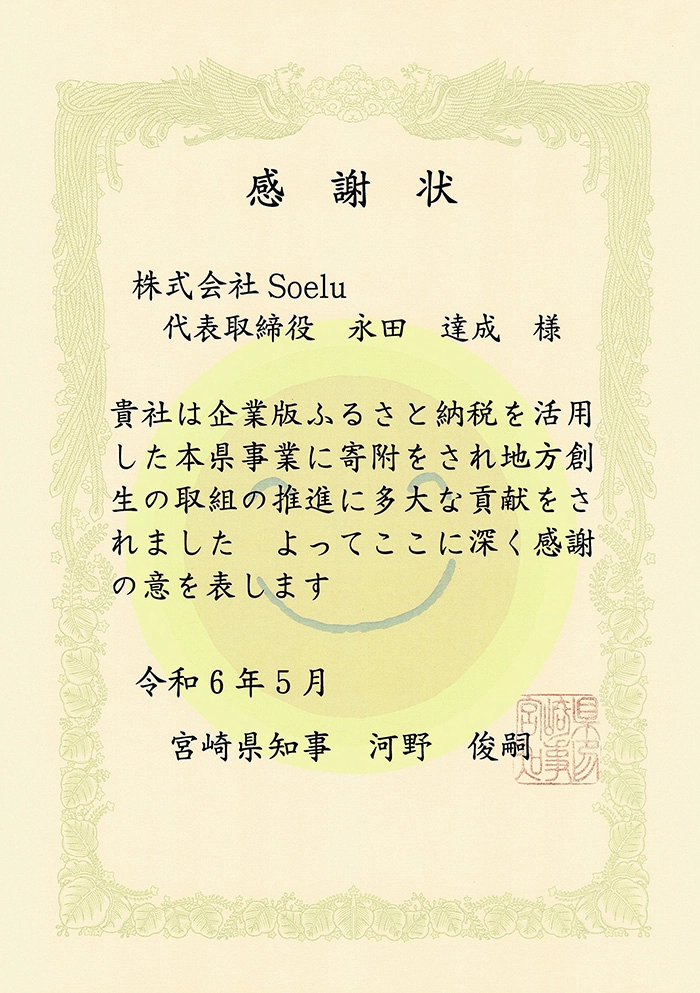 感 謝 状
株式会社 Soelu
代表取締役　永田　達成　様
貴社は企業版ふるさと納税を活用
した本県事業に寄附をされ地方創
生の取組の推進に多大な貢献をさ
れました　よってここに深く感謝
の意を表します
令和 6 年 5 月
宮崎県知事　河野　俊嗣
宮崎県知事